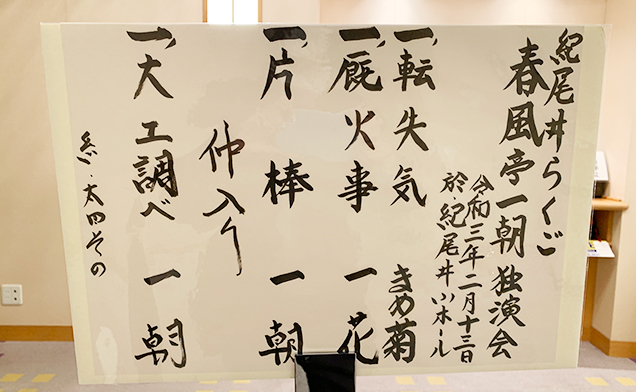 紀尾井らくご
春風亭一朝 独演会
令和三年二月十三日
於・紀尾井小ホール
一、転失気 きめ菊
一、厩火事 一花
一、片棒 一朝
仲入り
一、大工調べ 一朝
太田その